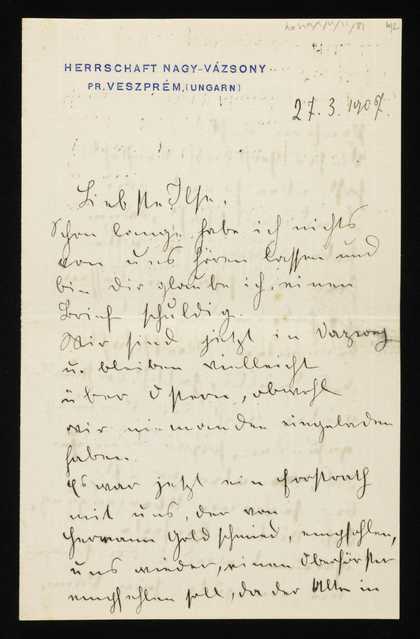 HERRSCHAFT NAGY-VÁZSONY
PR. VESZPRÉM, (UNGARN)
27. 3. 1907.
Liebste Ilse,
Schon lange habe ich nichts
von uns hören lassen und
bin dir glaube ich, einen
Brief schuldig.
Wir sind jetzt in Vazsony
u. bleiben vielleicht
über Ostern, obwohl
wir niemanden eingeladen
haben.
Es war jetzt ein Forstrath
mit uns, der von
Hermann Goldschmied, empfohlen,
uns wieder, einen Oberförster
empfehlen soll, da der Alte in